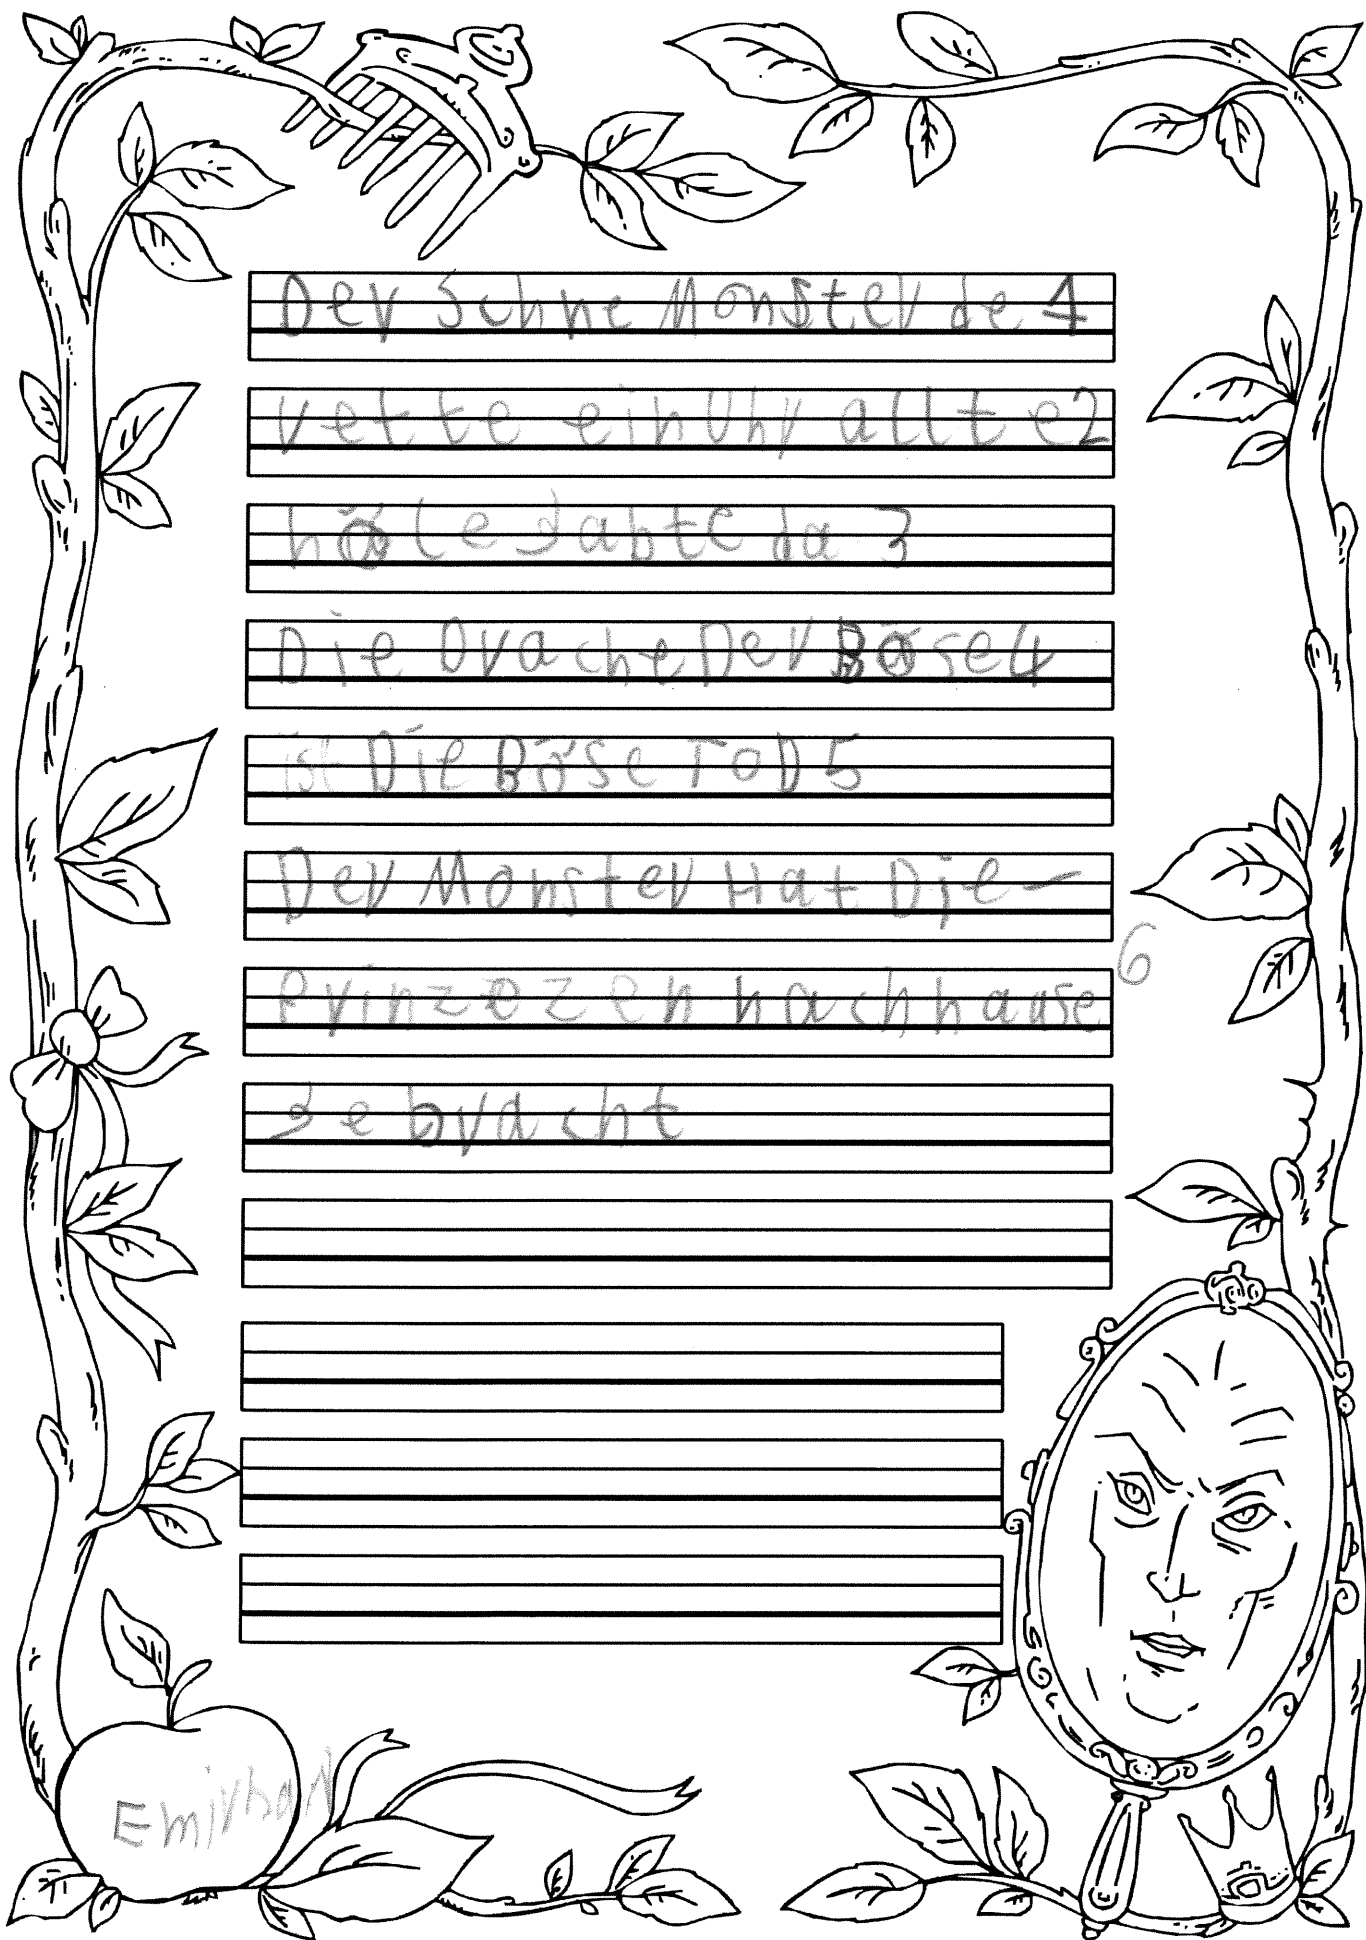 Der Schne Monster de 1
rette ein Uhr allte 2
höle gabte da 3
Die Drache Der Böse 4
ist Die Böse ToD 5
Der Monster Hat Die
Prinzezen nach hause 6
gebracht
EmirhaN